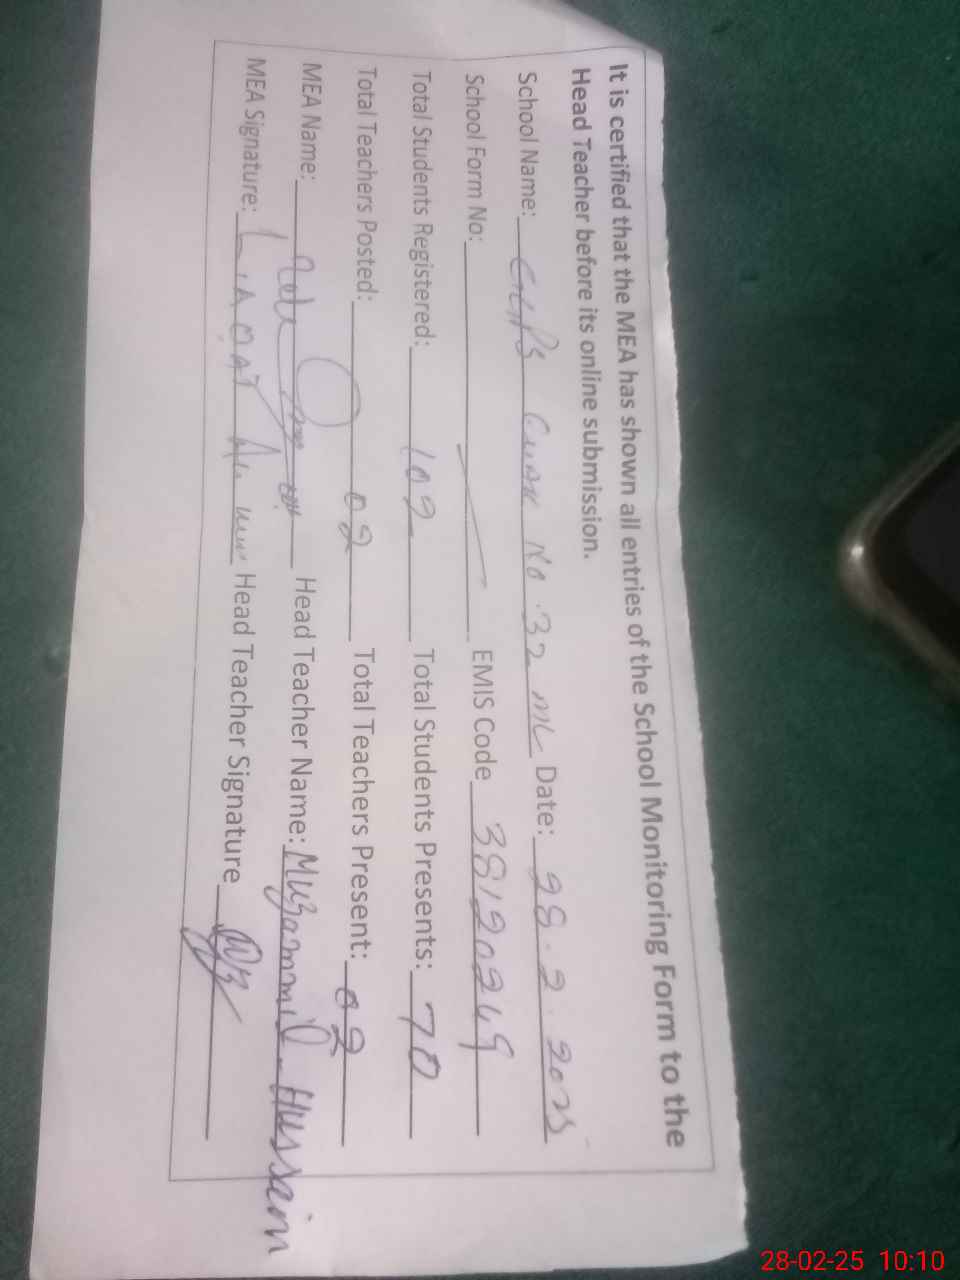 It is certified that the MEA has shown all entries of the School Monitoring Form to the
Head Teacher before its online submission.
School Name: GMPS Chak No. 32 ML Date: 28.2.2025
School Form No: EMIS Code 38120249
Total Students Registered: 102 Total Students Presents: 70
Total Teachers Posted: 02 Total Teachers Present: 02
MEA Name: Head Teacher Name: Muzammil Hussain
MEA Signature: LIAQAT Head Teacher Signature
28-02-25 10:10